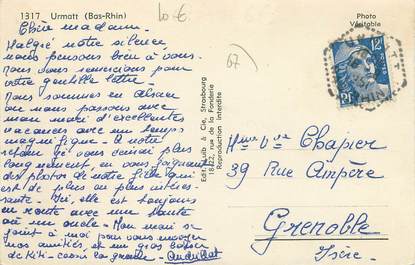 1317 Urmatt (Bas-Rhin)
Photo
Véritable
10-6
67
Chère madame.
Malgré notre silence
nous pensons bien à vous.
Nous vous remercions pour
votre gentille lettre.
Nous sommes en Alsace
où nous passons avec
mon mari d'excellentes
vacances avec un temps
magnifique. A notre
retour je vous écrirai plus
longuement, en vous joignant
des photos de notre fille qui
est de plus en plus intéres-
sante. Ici, elle est toujours
en route avec une tante
ou un oncle. Mon mari se
joint à moi pour vous envoyer
nos amitiés, et un gros baiser
de Kiki
la grande
12F
Édit. Luib & Cie, Strasbourg
18&22, rue de la Fonderie
Reproduction interdite
Mme Vve Chapier
39 Rue Ampère
Grenoble
Isère.